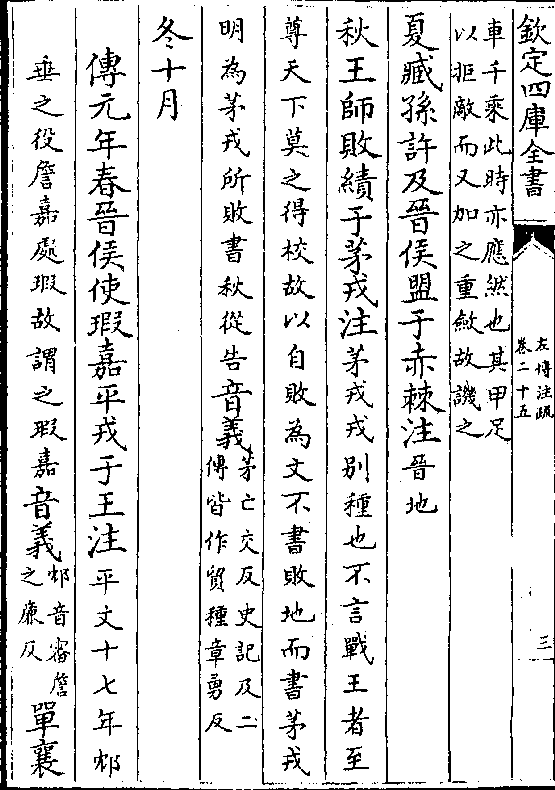 欽定四庫全書
左傳注疏
卷二十五
三
車千乘此時亦應然也其甲足
以拒敵而又加之重斂故譏之
夏臧孫許及晉侯盟于赤棘注晉地
秋王師敗績于茅戎注茅戎戎別種也不言戰王者至
尊天下莫之得校故以自敗為文不書敗地而書茅戎
明為茅戎所敗書秋從告音義茅亡交反史記及二
傳皆作貿種章勇反
冬十月
傳元年春晉侯使瑕嘉平戎于王注平文十七年邥
垂之役詹嘉處瑕故謂之瑕嘉音義邥音審詹
之廉反單襄